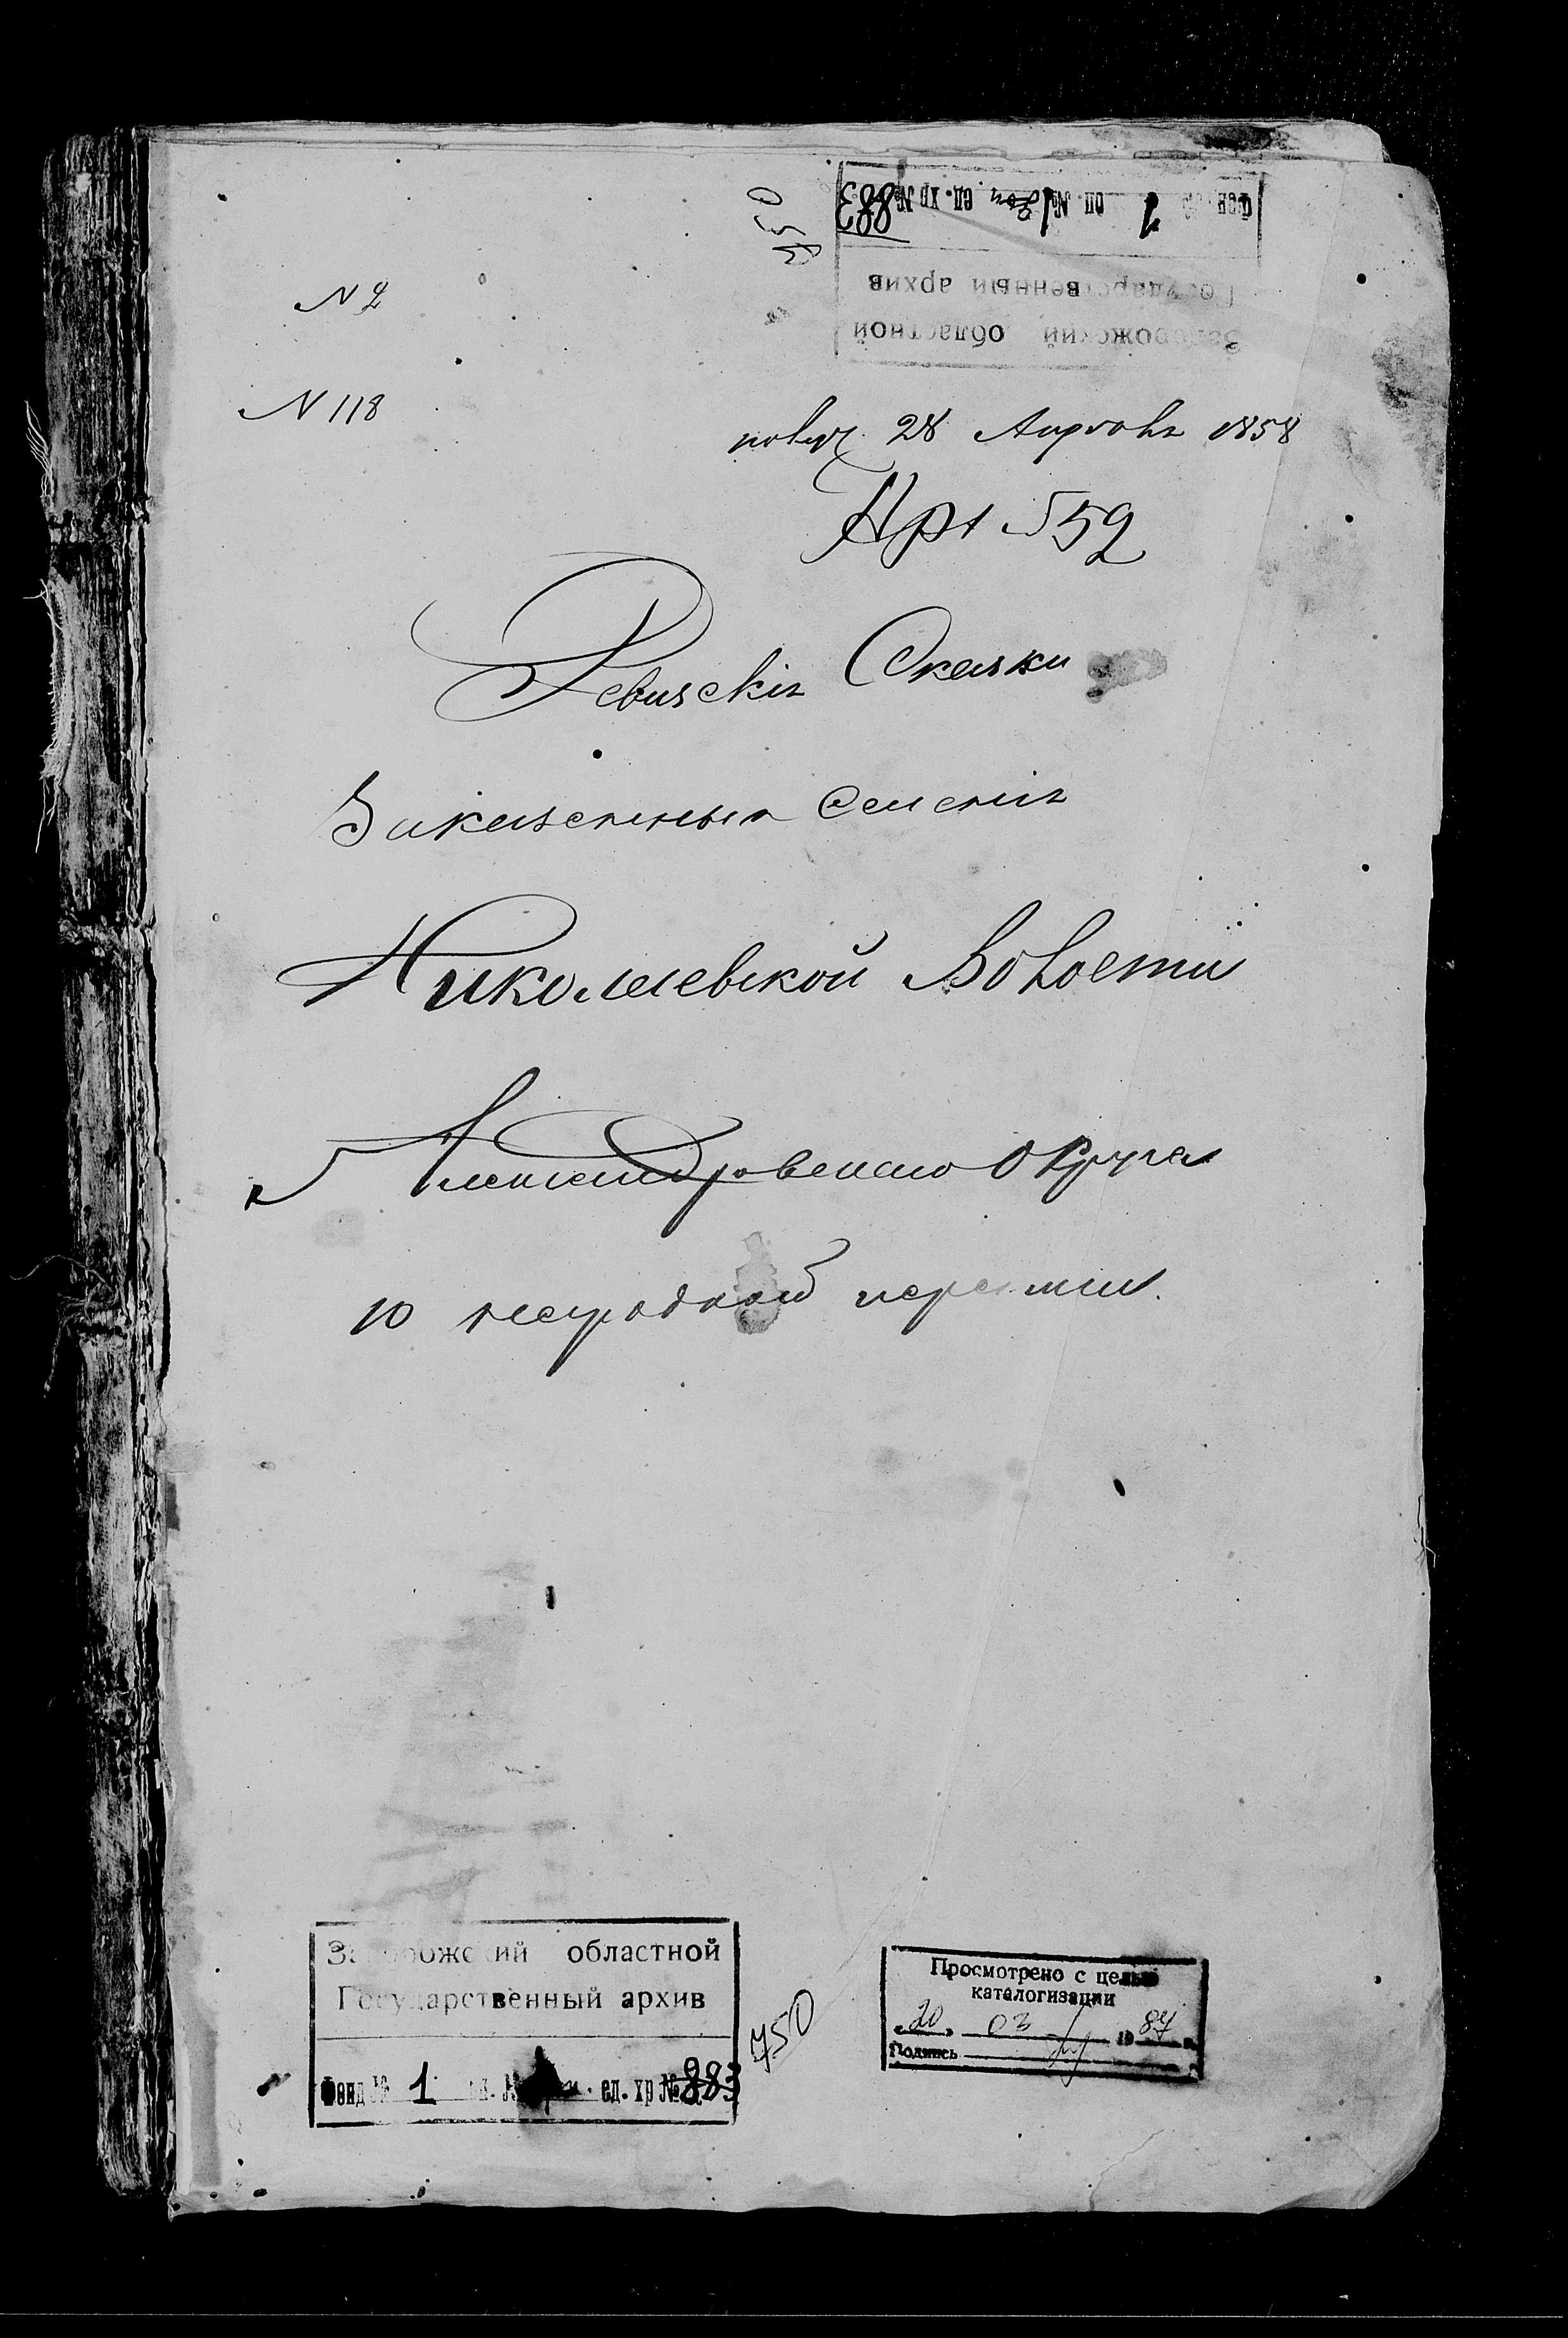 Фонд № 1 оп. № 1 доп ед. хр № 883
Государственный архив
Запорожский областной
750
N 2
N 118
получ. 28 Апреля 1858
Нрт 559
Ревизскія Сказки
Заказенныя Селенія
Николаевской Волости
Александровскаго Округа
10 народной переписи.
Запорожский областной
Государственный архив
Фонд № 1 ед. хр № 883
750
Просмотрено с целью
каталогизации
„20„ 03 1987 г.
Подпись